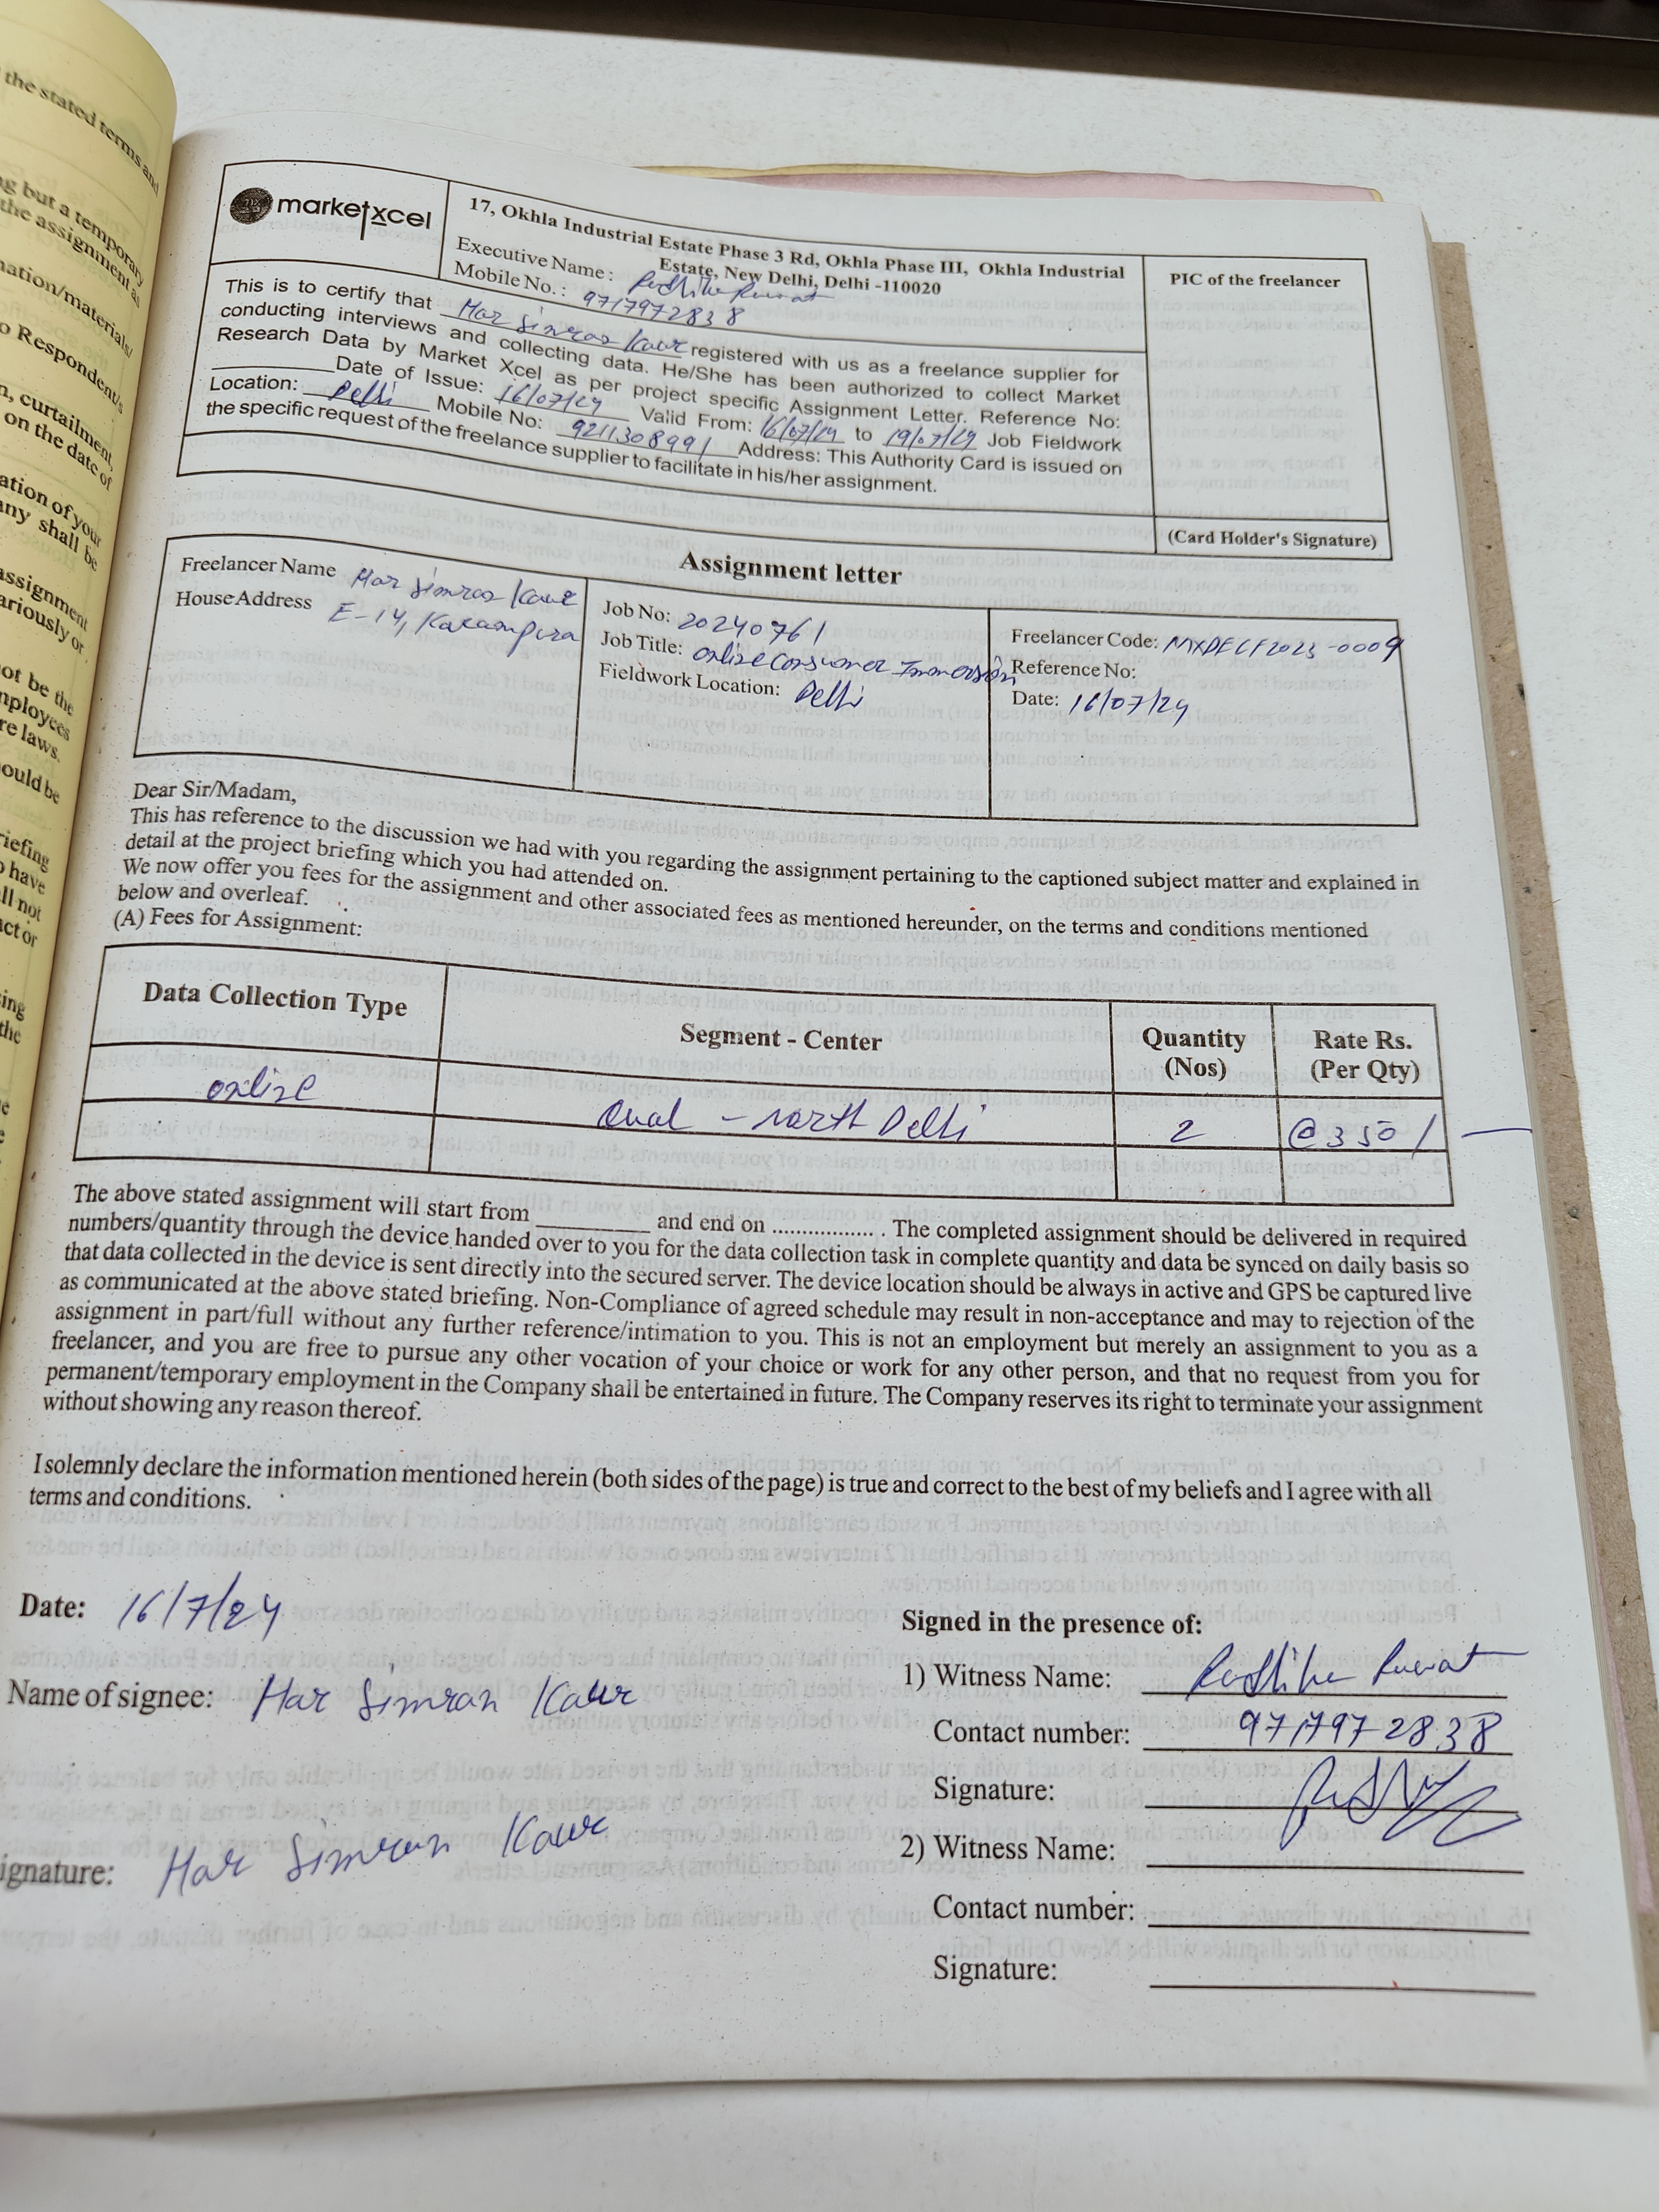 the stated terms and
ng but a temporary
the assignment as
mation/materials/
o Respondent/s
n, curtailment,
on the date of
ation of your
any shall be
assignment
ariously or
not be the
mployees
re laws.
ould be
riefing
o have
ll not
act or
ing
the
marketxcel
17, Okhla Industrial Estate Phase 3 Rd, Okhla Phase III, Okhla Industrial
Estate, New Delhi, Delhi -110020
Executive Name : Radhika Rawat
Mobile No. : 9717972838
PIC of the freelancer
This is to certify that Har Simran Kaur registered with us as a freelance supplier for
conducting interviews and collecting data. He/She has been authorized to collect Market
Research Data by Market Xcel as per project specific Assignment Letter. Reference No:
Date of Issue: 16/07/24 Valid From: 16/07/24 to 19/07/24 Job Fieldwork
Location: Delhi Mobile No: 9211308991 Address: This Authority Card is issued on
the specific request of the freelance supplier to facilitate in his/her assignment.
(Card Holder's Signature)
Assignment letter
Freelancer Name Har Simran Kaur
House Address E-14, Karampura
Job No: 20240761
Job Title: Online Consumer Immersion
Fieldwork Location: Delhi
Freelancer Code: MXDELF2023-0009
Reference No:
Date: 16/07/24
Dear Sir/Madam,
This has reference to the discussion we had with you regarding the assignment pertaining to the captioned subject matter and explained in
detail at the project briefing which you had attended on.
We now offer you fees for the assignment and other associated fees as mentioned hereunder, on the terms and conditions mentioned
below and overleaf.
(A) Fees for Assignment:
Data Collection Type Segment - Center Quantity (Nos) Rate Rs. (Per Qty)
online Qual - North Delhi 2 @350/-
The above stated assignment will start from __________ and end on .................. . The completed assignment should be delivered in required
numbers/quantity through the device handed over to you for the data collection task in complete quantity and data be synced on daily basis so
that data collected in the device is sent directly into the secured server. The device location should be always in active and GPS be captured live
as communicated at the above stated briefing. Non-Compliance of agreed schedule may result in non-acceptance and may to rejection of the
assignment in part/full without any further reference/intimation to you. This is not an employment but merely an assignment to you as a
freelancer, and you are free to pursue any other vocation of your choice or work for any other person, and that no request from you for
permanent/temporary employment in the Company shall be entertained in future. The Company reserves its right to terminate your assignment
without showing any reason thereof.
I solemnly declare the information mentioned herein (both sides of the page) is true and correct to the best of my beliefs and I agree with all
terms and conditions.
Date: 16/7/24
Name of signee: Har Simran Kaur
ignature: Har Simran Kaur
Signed in the presence of:
1) Witness Name: Radhika Rawat
Contact number: 9717972838
Signature:
2) Witness Name:
Contact number:
Signature: